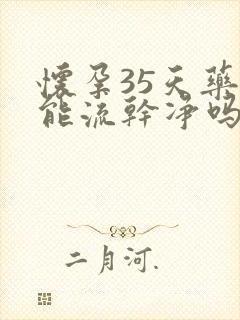 懷孕35天藥
能流幹净吗
二月河.